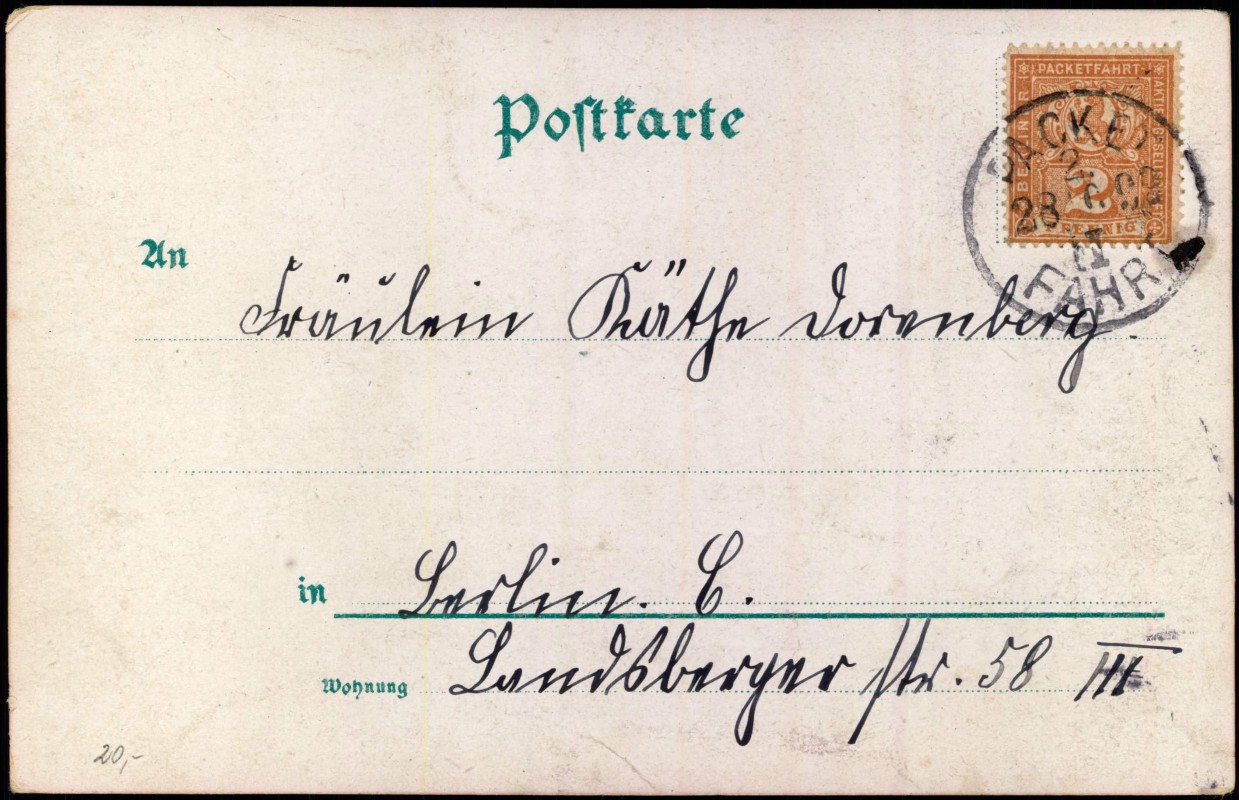 Postkarte
BERLINER
PACKETFAHRT-
AKTIEN GESELLSCHAFT
2
PFENNIG
PACKET
28
FAHRT
An
Fräulein Käthe Dorenberg.
in Berlin. C.
Wohnung Landsberger str. 58 III
20,-